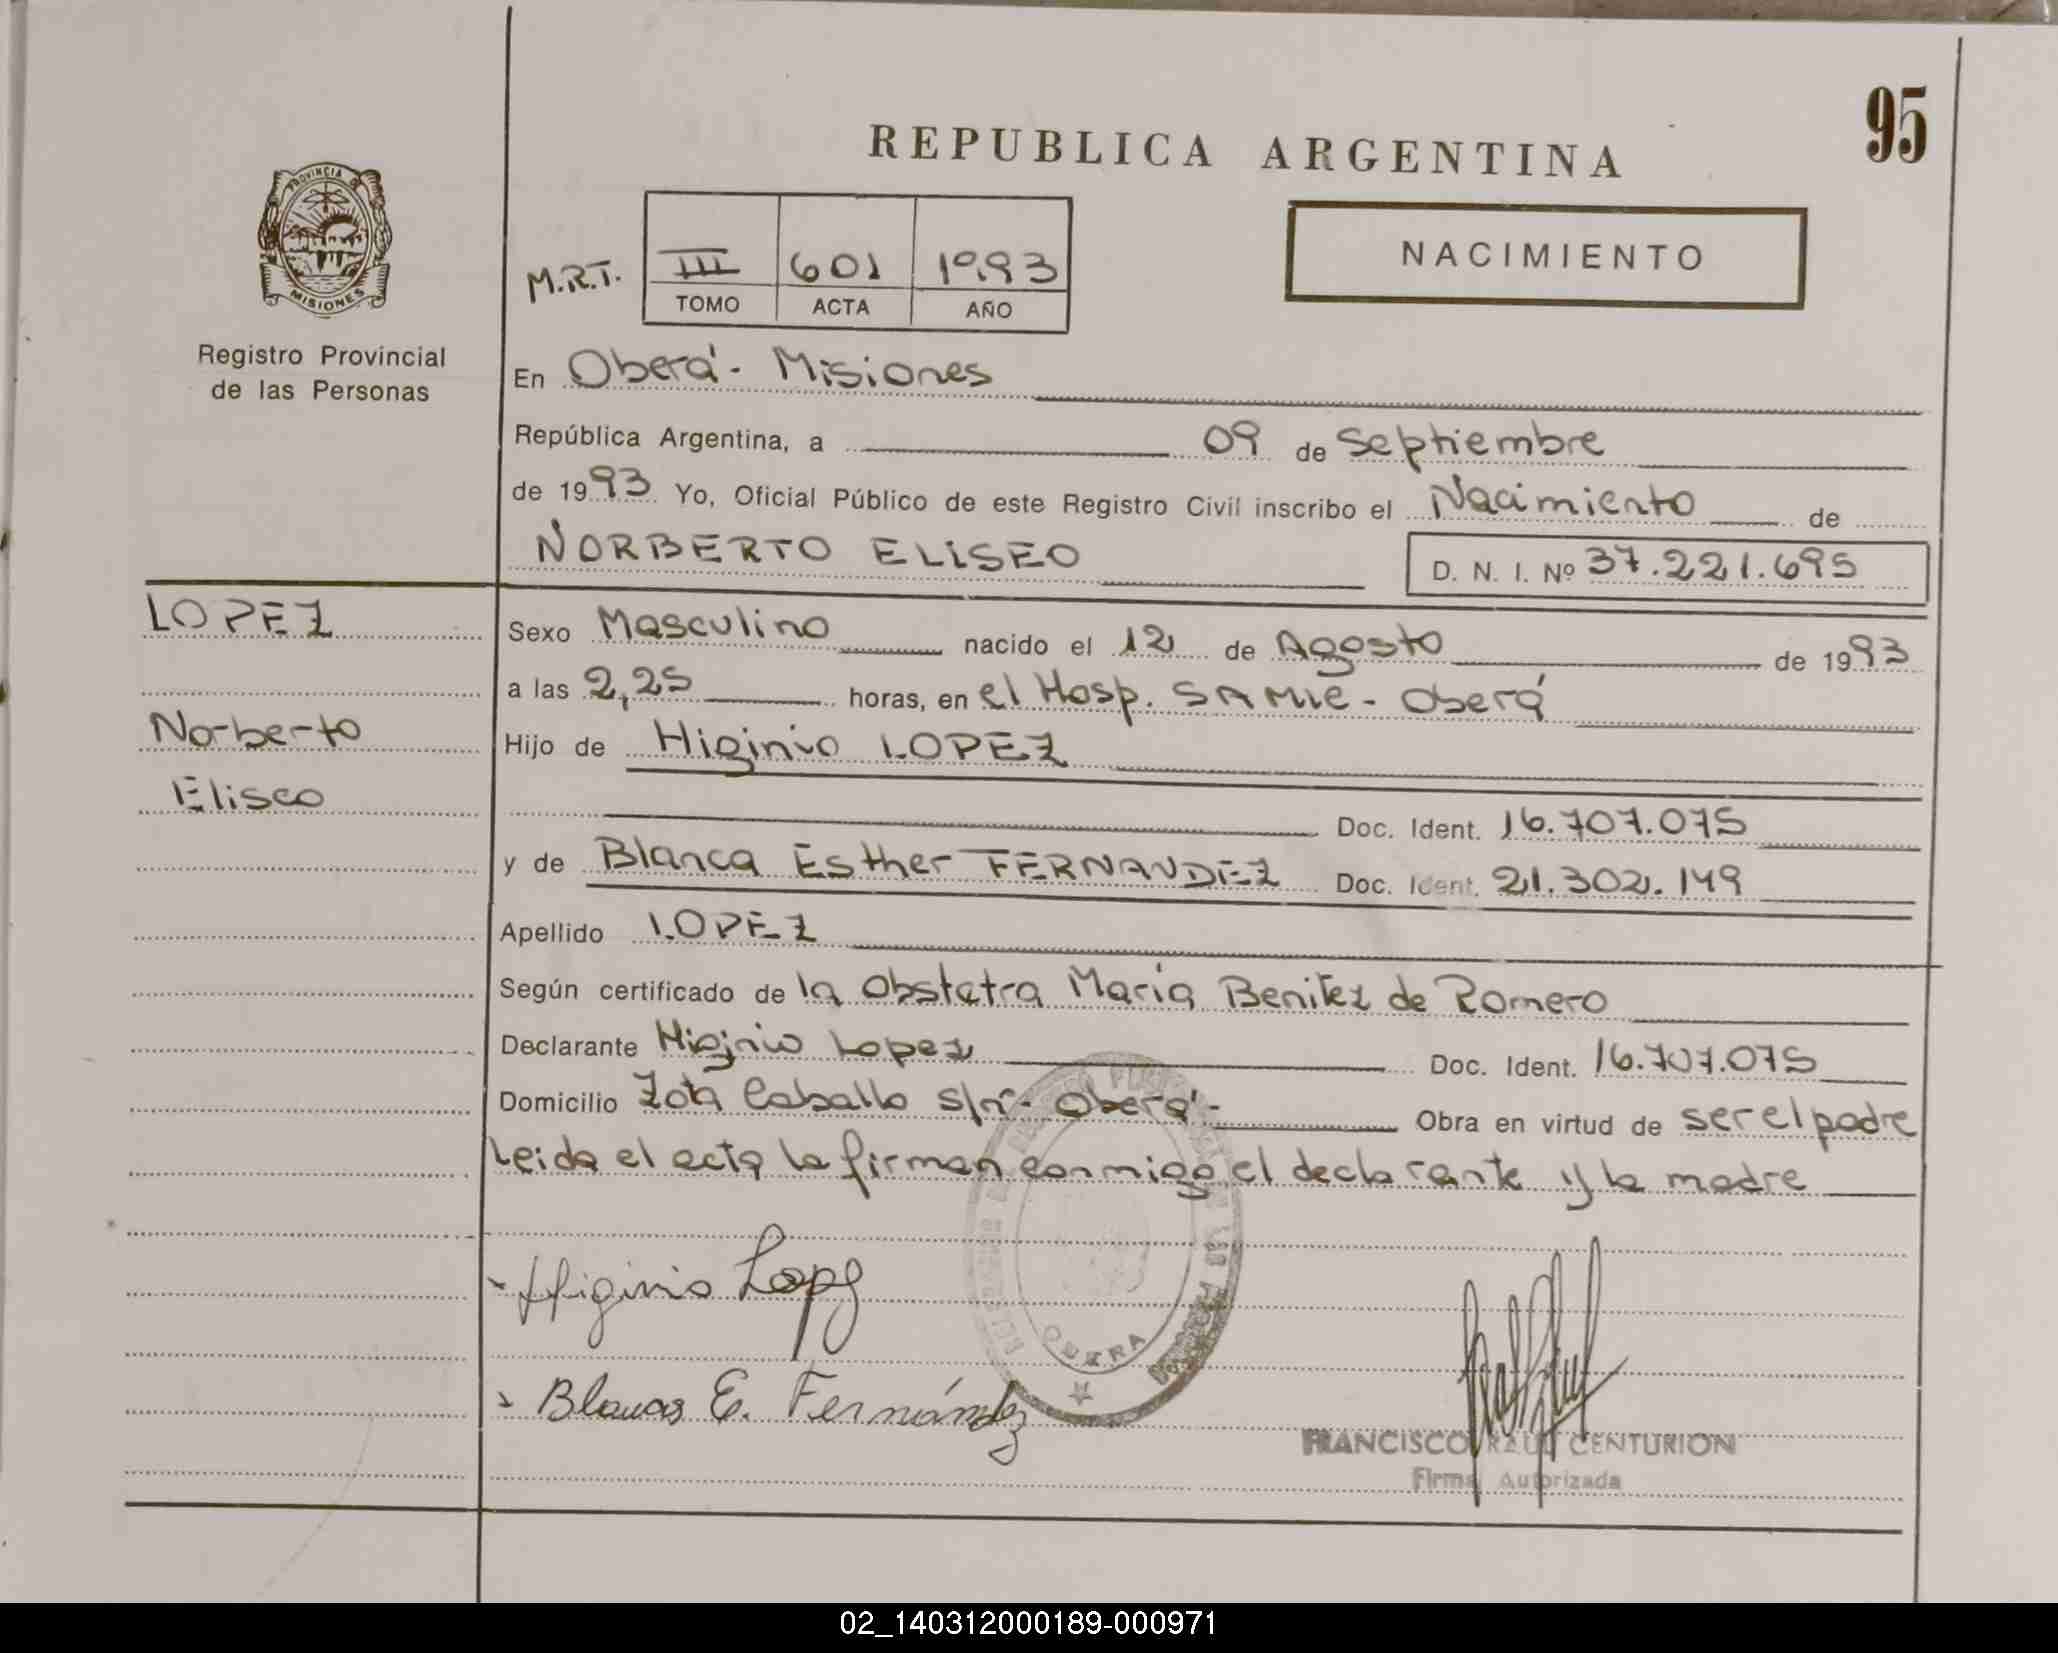 95
REPUBLICA ARGENTINA
NACIMIENTO
PROVINCIA DE
MISIONES
Registro Provincial
de las Personas
M.R.T. III 601 1993
TOMO ACTA AÑO
En Oberá - Misiones
República Argentina, a 09 de Septiembre
de 1993 Yo, Oficial Público de este Registro Civil inscribo el Nacimiento de
NORBERTO ELISEO D. N. I. Nº 37.221.695
LOPEZ
Norberto
Eliseo
Sexo Masculino nacido el 12 de Agosto de 1993
a las 2,25 horas, en el Hosp. SAMIC - Oberá
Hijo de Higinio LOPEZ
Doc. Ident. 16.707.075
y de Blanca Esther FERNANDEZ Doc. Ident. 21.302.149
Apellido LOPEZ
Según certificado de la Obstetra María Benitez de Romero
Declarante Higinio Lopez Doc. Ident. 16.707.075
Domicilio Zona Caballo s/nº - Oberá - Obra en virtud de ser el padre
Leida el acta la firman conmigo el declarante y la madre
Higinio Lopez
Blanca E. Fernández
OBERA
FRANCISCO RAUL CENTURION
Firma Autorizada
02_140312000189-000971